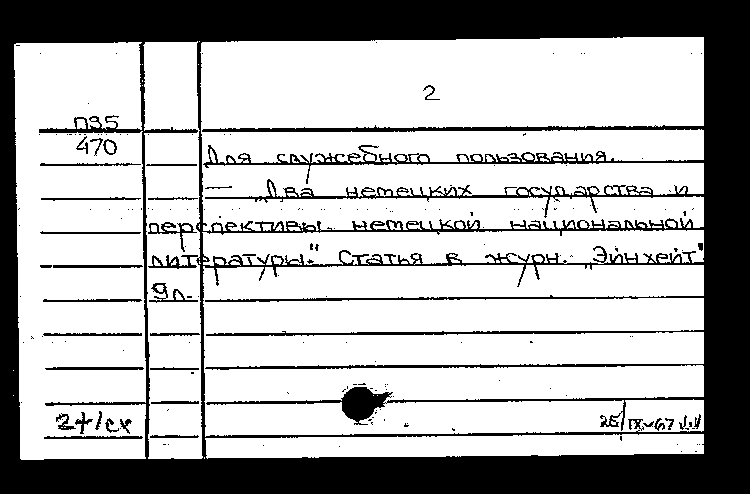 2
П35
470
Для служебного пользования.
— „Два немецких государства и
перспективы немецкой национальной
литературы." Статья в журн. „Эйнхейт"
9л.
25/IX-67